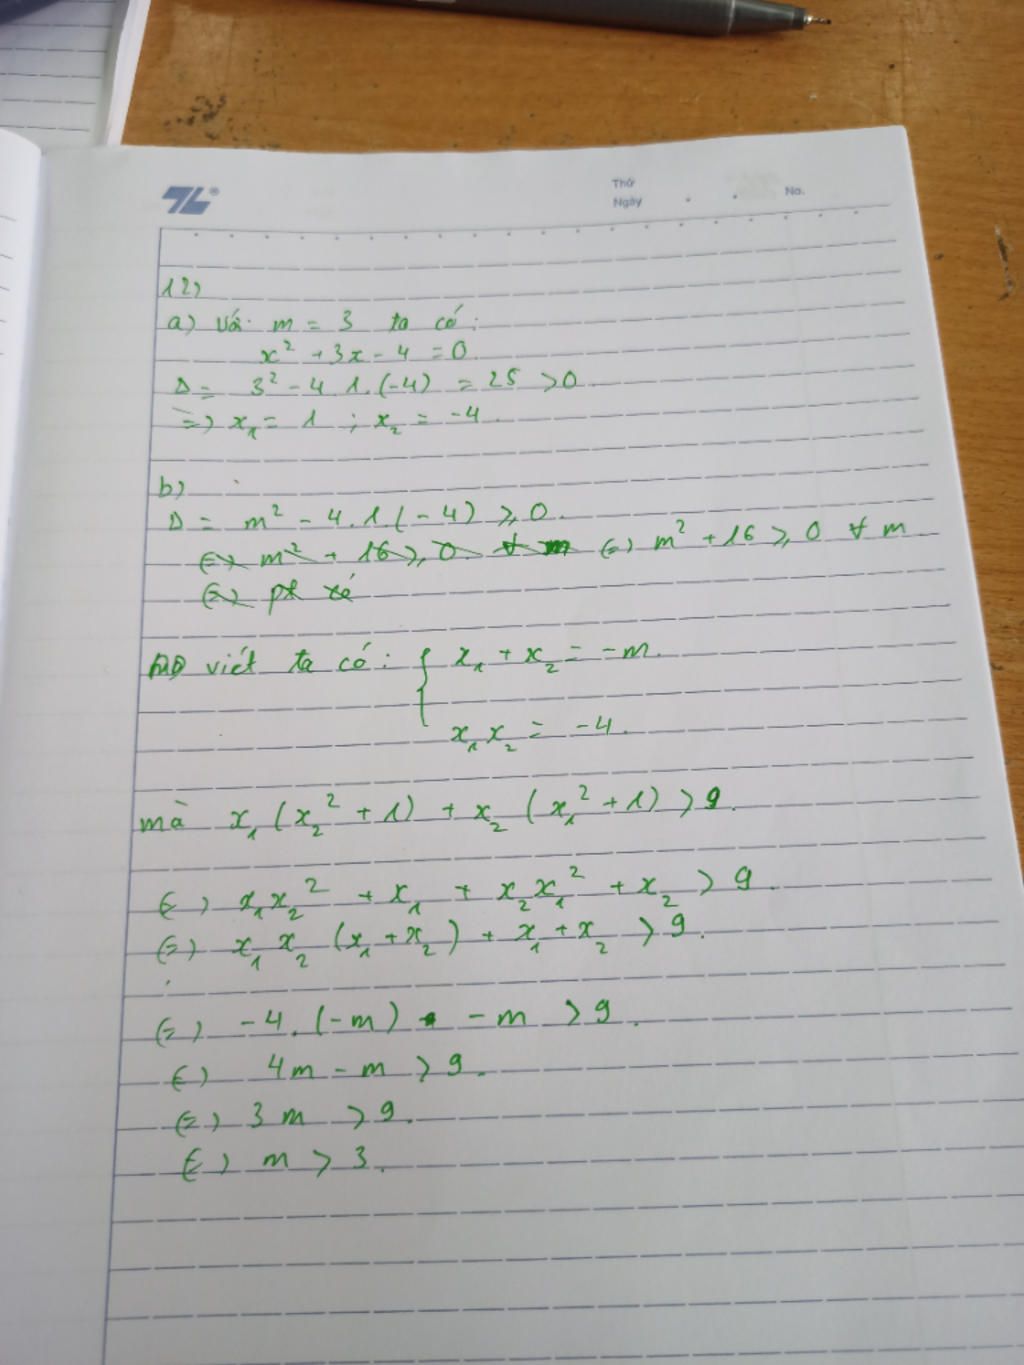 TL®
Thứ
Ngày
No.
12)
a) Với m = 3 ta có:
x² + 3x - 4 = 0
Δ = 3² - 4.1.(-4) = 25 > 0
=> x₁ = 1 ; x₂ = -4.
b)
Δ = m² - 4.1.(-4) ⩾ 0.
(=) m² + 16 ⩾ 0 ∀ m (=) m² + 16 ⩾ 0 ∀ m
(=) pt
ADĐ viét ta có: { x₁ + x₂ = -m.
x₁x₂ = -4.
mà x₁(x₂² + 1) + x₂(x₁² + 1) > 9.
(=) x₁x₂² + x₁ + x₂x₁² + x₂ > 9.
(=) x₁x₂(x₁ + x₂) + x₁ + x₂ > 9.
(=) -4.(-m) - m > 9.
(=) 4m - m > 9.
(=) 3m > 9.
(=) m > 3.